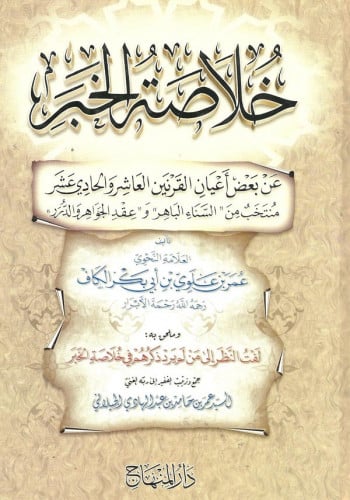 خُلَاصَةُ الخَبَر
عَنْ بَعْضِ أَعْيَانِ القَرْنَينِ العَاشِرِ وَالحَادِي عَشَر
مُنتَخَبٌ مِن "السَّنَاءِ البَاهِر" وَ"عِقْدِ الجَوَاهِرِ وَالدُّرَر"
تأليف
العَلَّامَةِ النَّحْوِيِّ
عُمَرَ بنِ عَلَوِيِّ بنِ أَبِي بَكْرٍ الكَافِ
رَحِمَهُ اللهُ رَحْمَةَ الأَبْرَارِ
وملحق به:
لَفْتُ النَّظَرِ إِلَى مَنْ لَمْ يَرِدْ ذِكْرُهُمْ فِي خُلَاصَةِ الخَبَر
جمع وترتيب الفقير إلى ربه الغني
السيد عمر بن حامد بن عبد الهادي الجيلاني
دَارُ المِنْهَاج